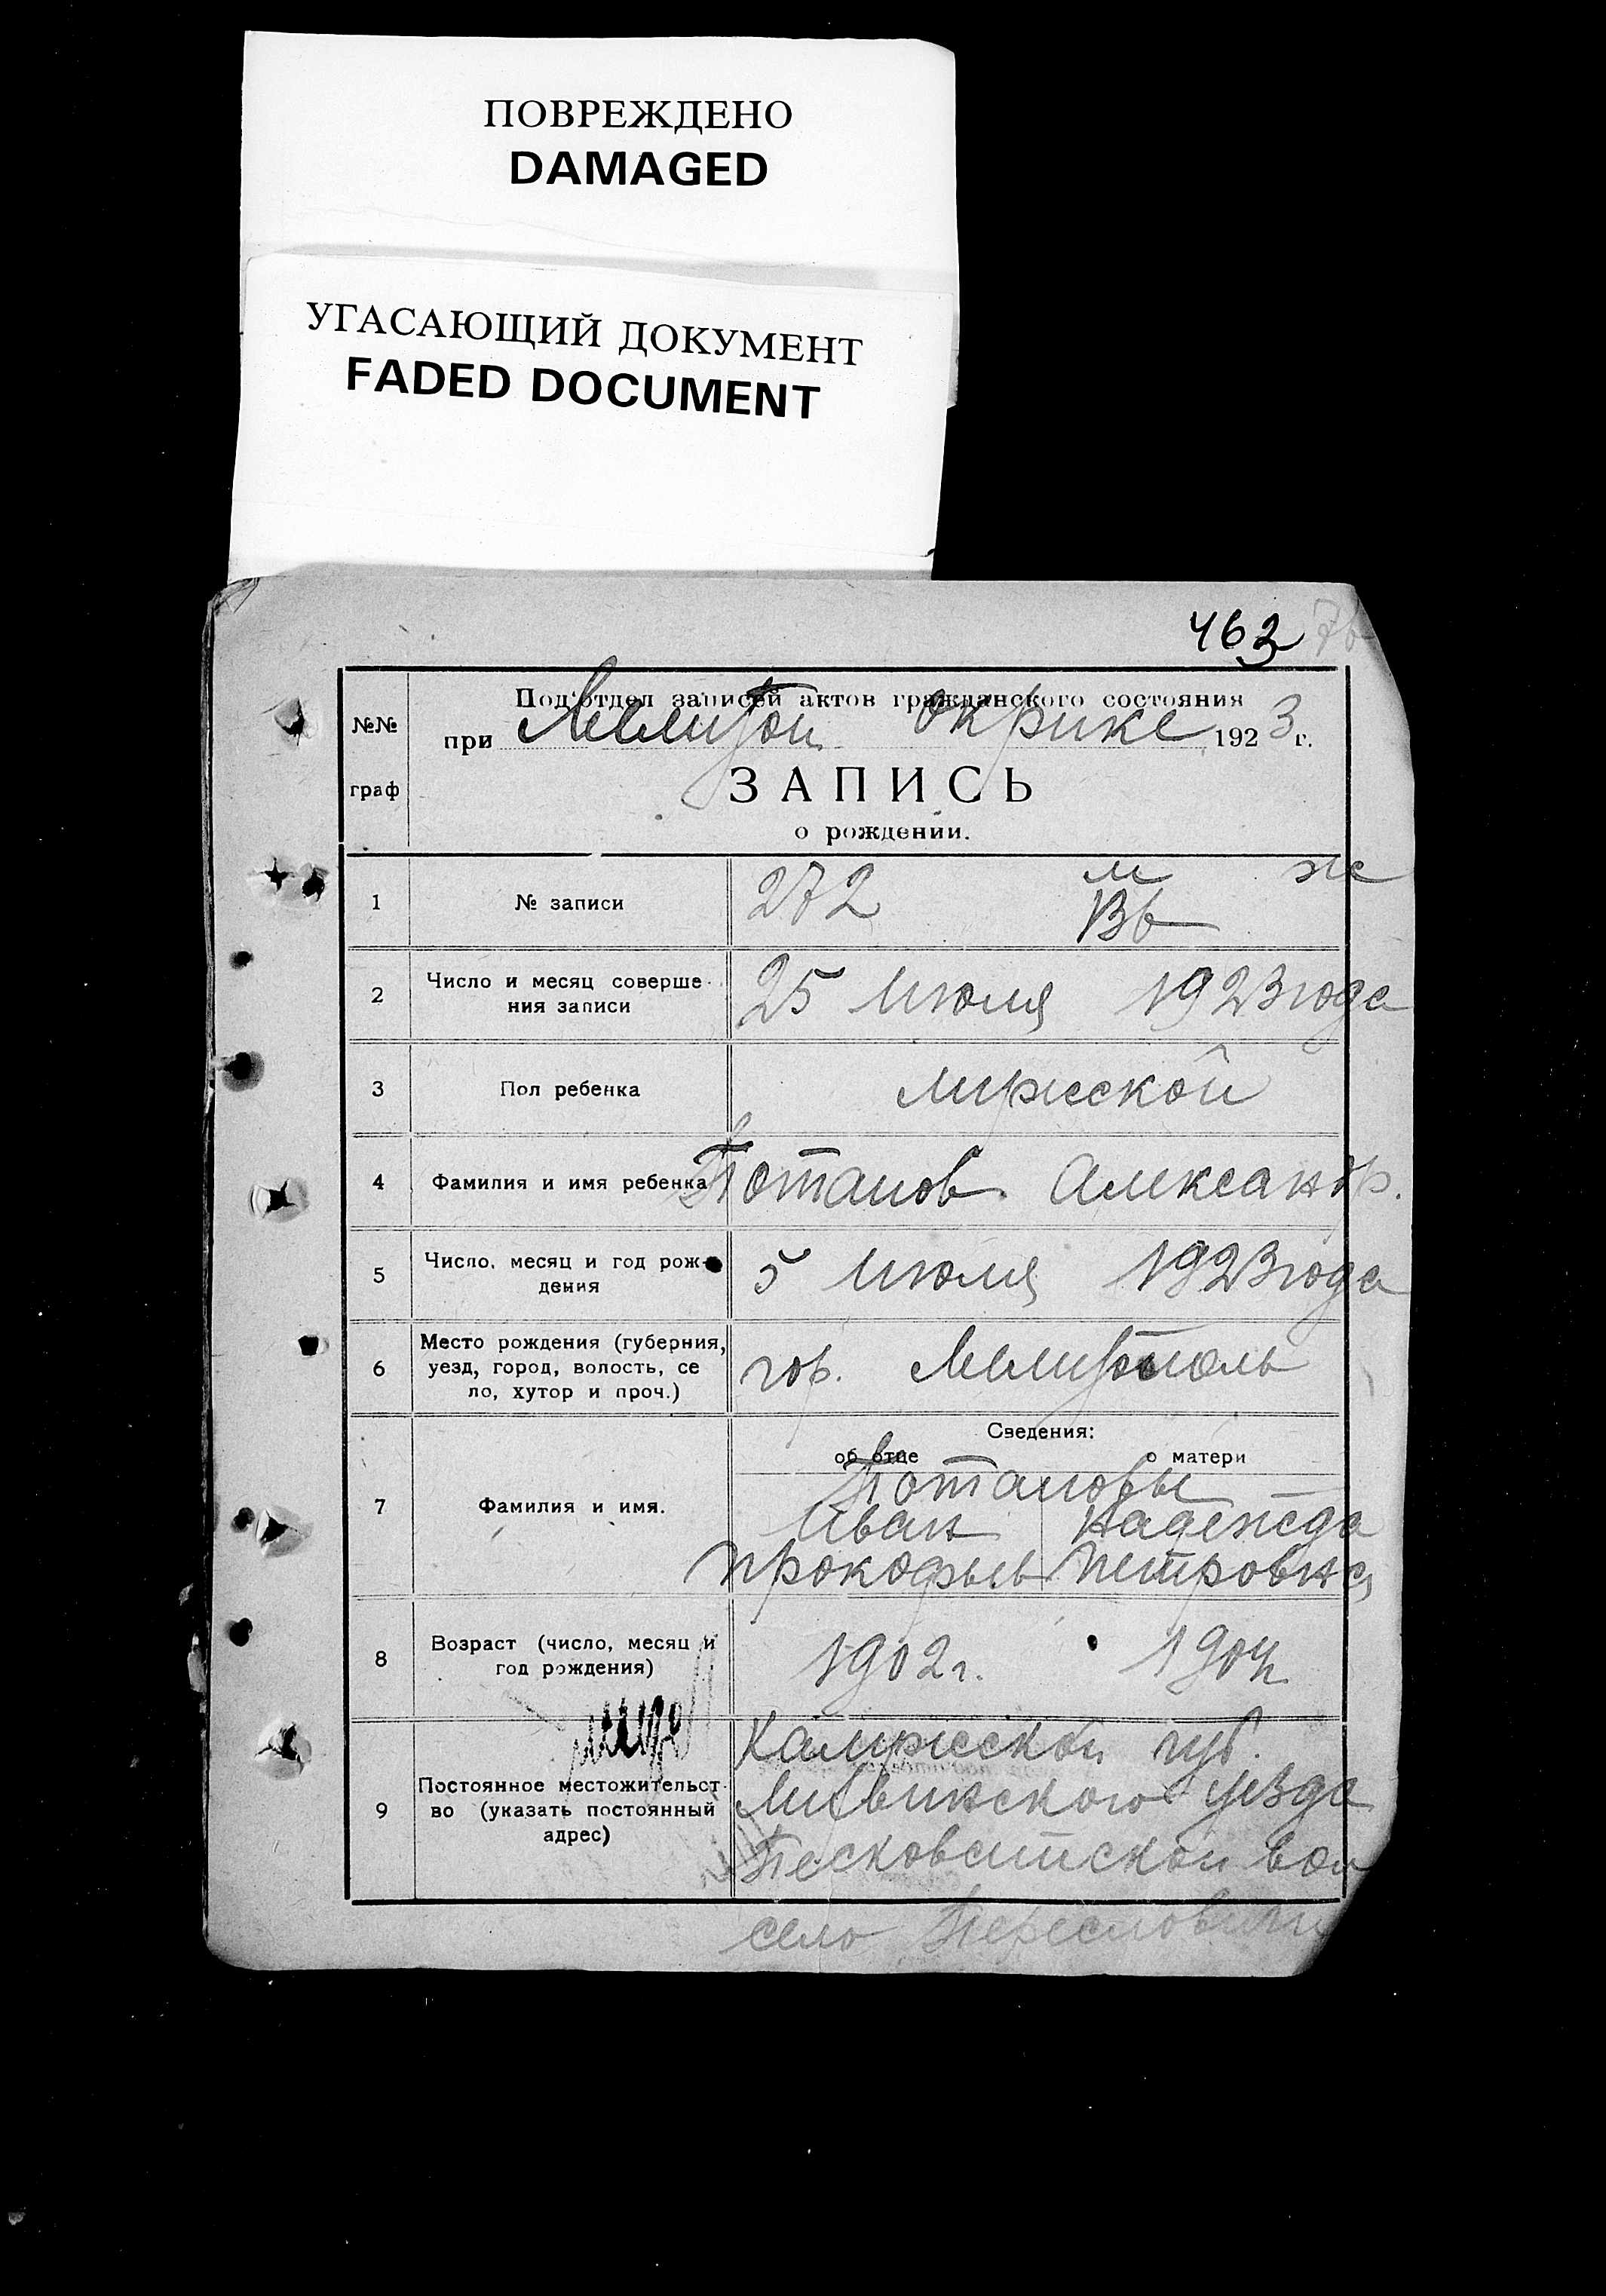 ПОВРЕЖДЕНО
DAMAGED
УГАСАЮЩИЙ ДОКУМЕНТ
FADED DOCUMENT
463
№№ граф
Под'отдел записей актов гражданского состояния
при Мелитоп. Окрике 1923 г.
ЗАПИСЬ
о рождении.
м ж
1 № записи 272
2 Число и месяц соверше-
ния записи 25 Июля 1923 года
3 Пол ребенка мужеской
4 Фамилия и имя ребенка Потапов Александр.
5 Число, месяц и год рож-
дения 5 Июля 1923 года
6 Место рождения (губерния,
уезд, город, волость, се
ло, хутор и проч.) гор. Мелитополь
Сведения:
об отце о матери
Потаповы
7 Фамилия и имя. Иван Надежда
Прокофьев Петровна
8 Возраст (число, месяц и
год рождения) 1902 г. 1904
9 Постоянное местожительст-
во (указать постоянный
адрес) Калужской губ.
уезда
Песковатской вол
село